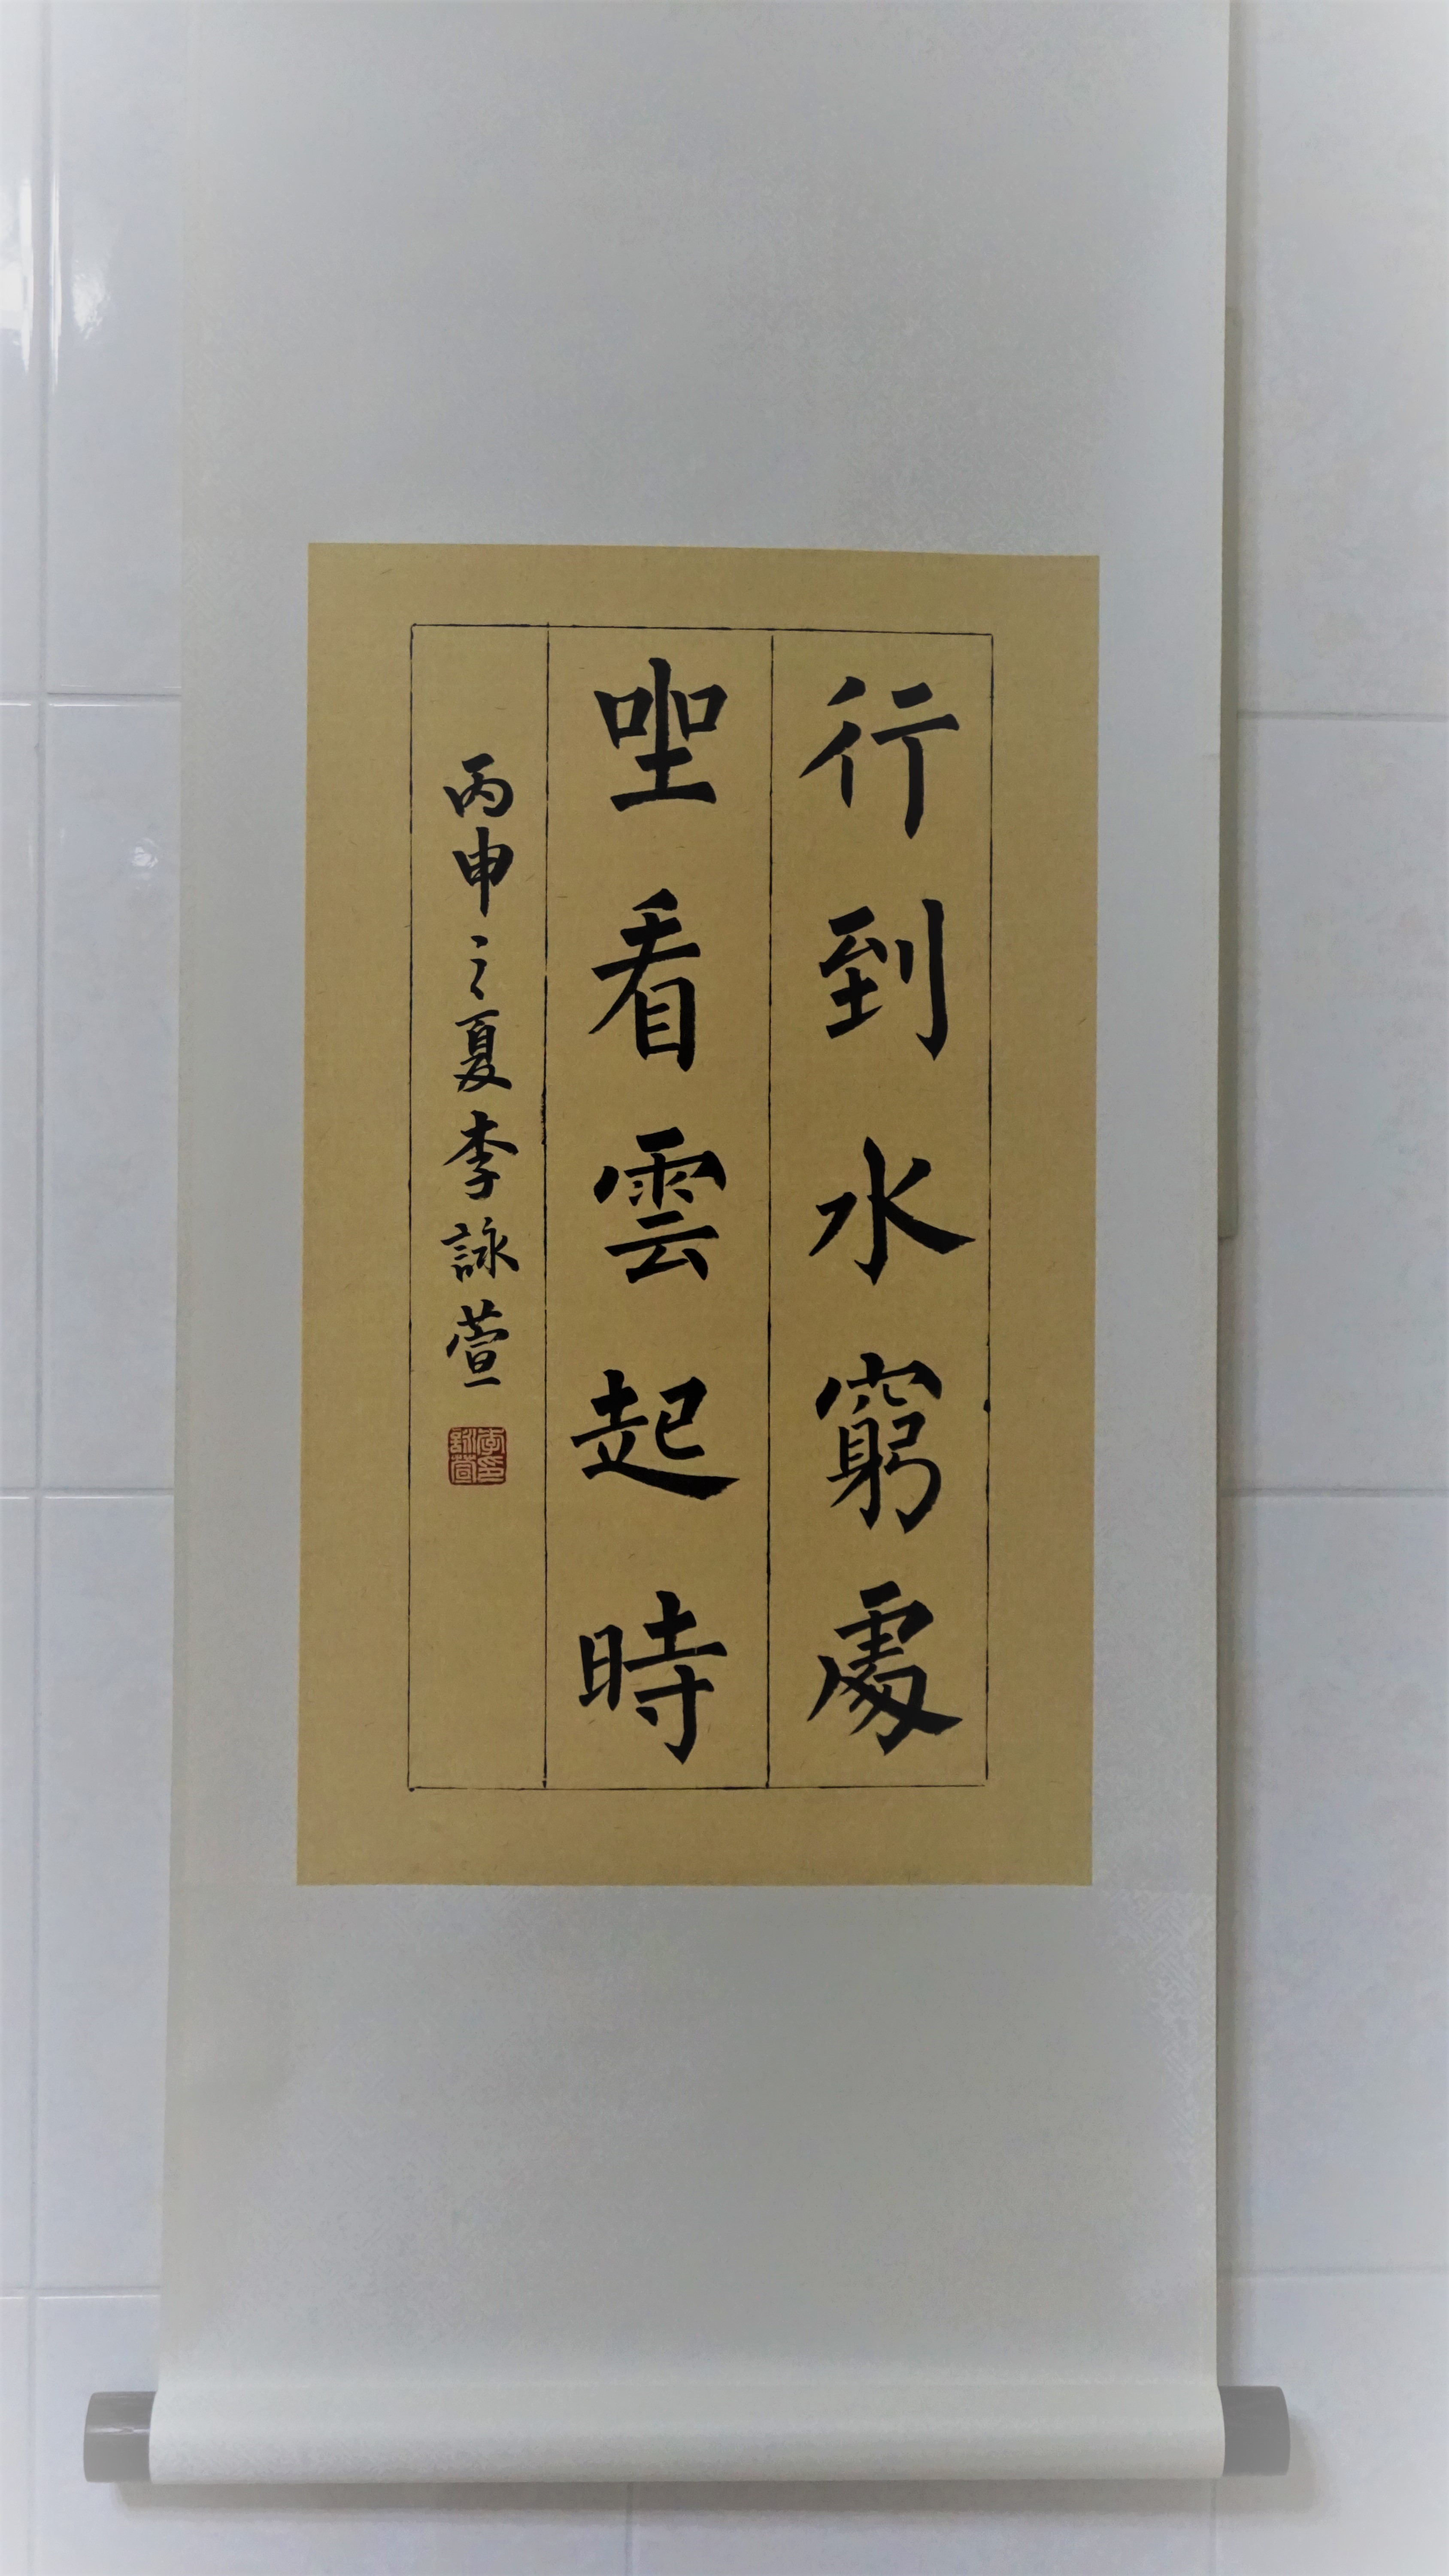 行到水窮處
坐看雲起時
丙申之夏李詠萱
李印詠萱